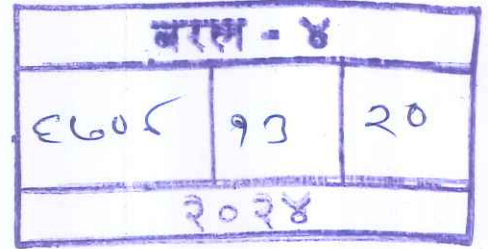 बरल - ४
६७०८ १३ २०
२०२४